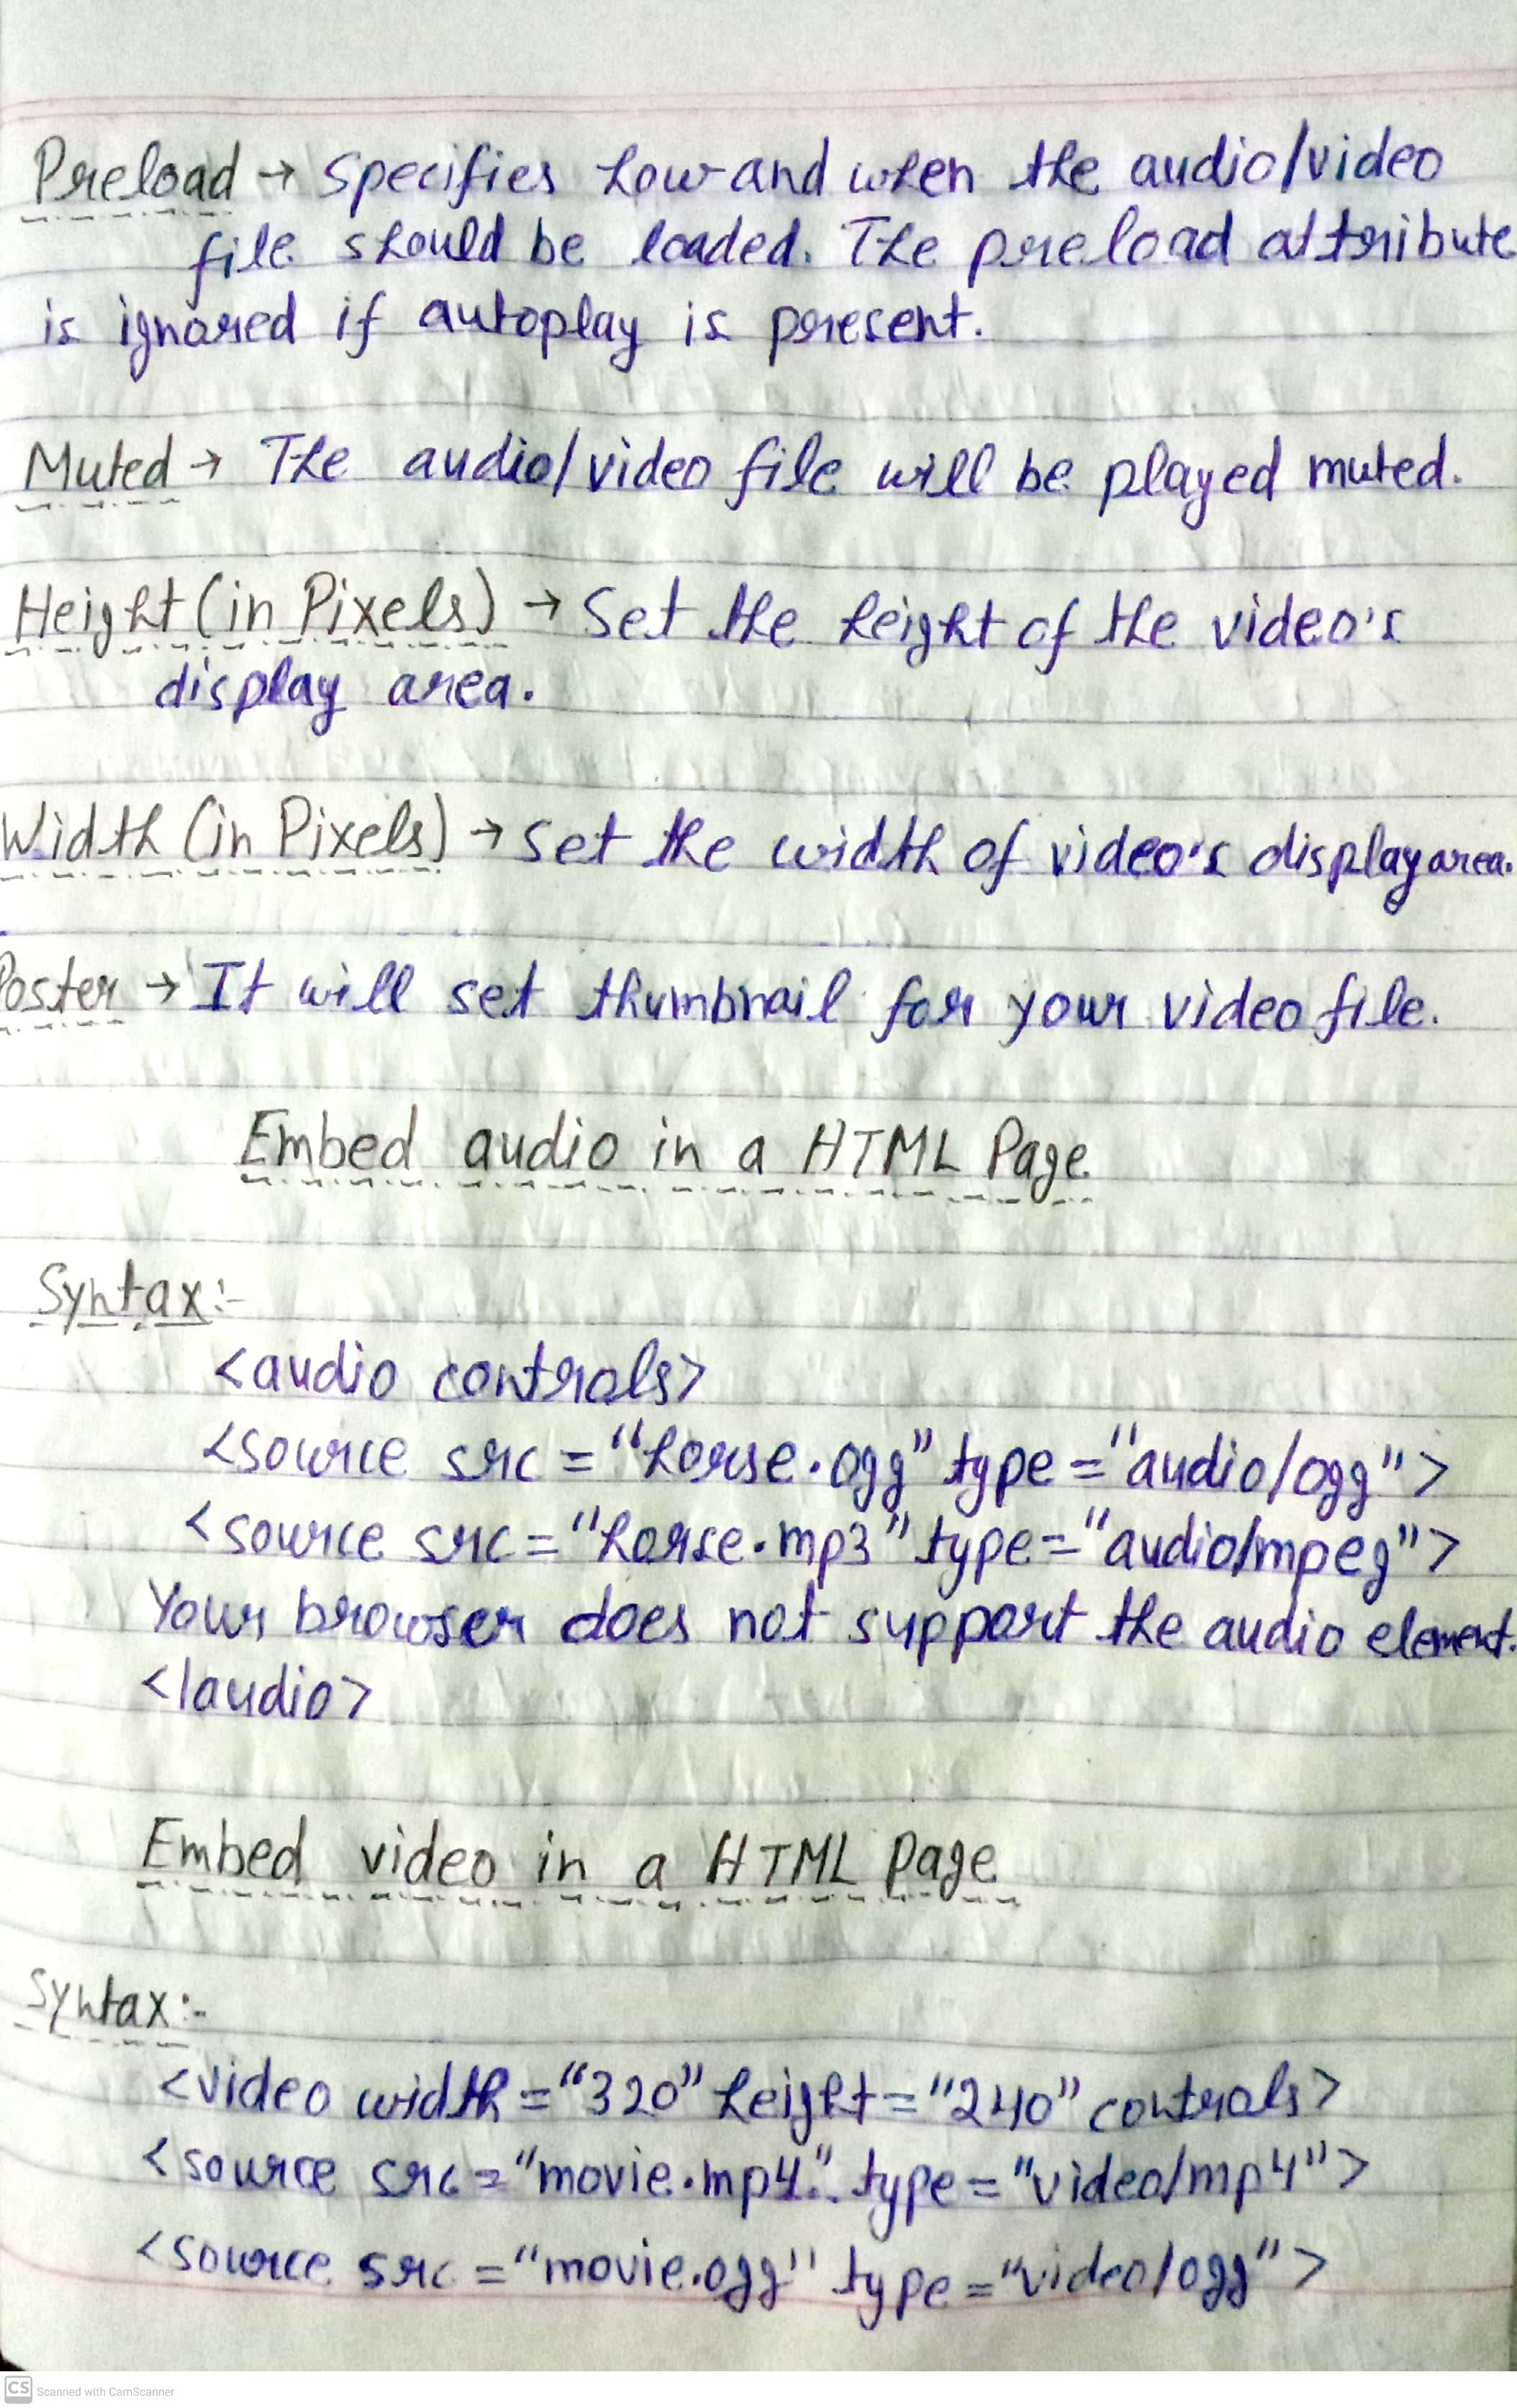 Preload → Specifies how and when the audio/video
file should be loaded. The preload attribute
is ignored if autoplay is present.
Muted → The audio/video file will be played muted.
Height (in Pixels) → Set the height of the video's
display area.
Width (in Pixels) → Set the width of video's display area.
Poster → It will set thumbnail for your video file.
Embed audio in a HTML Page
Syntax:-
<audio controls>
<source src = "horse.ogg" type = "audio/ogg">
<source src = "horse.mp3" type = "audio/mpeg">
Your browser does not support the audio element.
</audio>
Embed video in a HTML Page
Syntax:-
<video width = "320" height = "240" controls>
<source src = "movie.mp4" type = "video/mp4">
<source src = "movie.ogg" type = "video/ogg">
CS Scanned with CamScanner